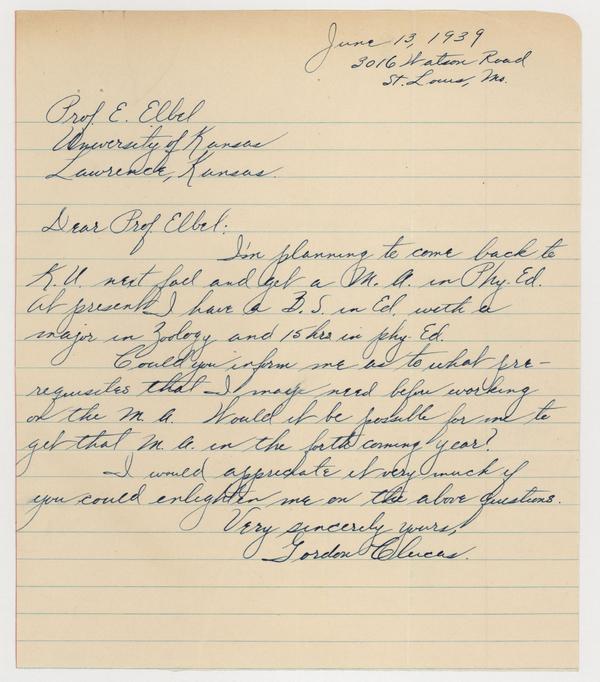 June 13, 1939
3016 Watson Road
St. Louis, Mo.
Prof. E. Elbel
University of Kansas
Lawrence, Kansas.
Dear Prof. Elbel:
I'm planning to come back to
K.U. next fall and get a M.A. in Phy. Ed.
At present I have a B.S. in Ed. with a
major in Zoology and 15 hrs in phy. Ed.
Could you inform me as to what pre-
requisites that I maye need before working
on the M.A. Would it be possible for me to
get that M.A. in the forth coming year?
I would appreciate it very much if
you could enlighten me on the above questions.
Very sincerely yours,
Gordon Clucas.